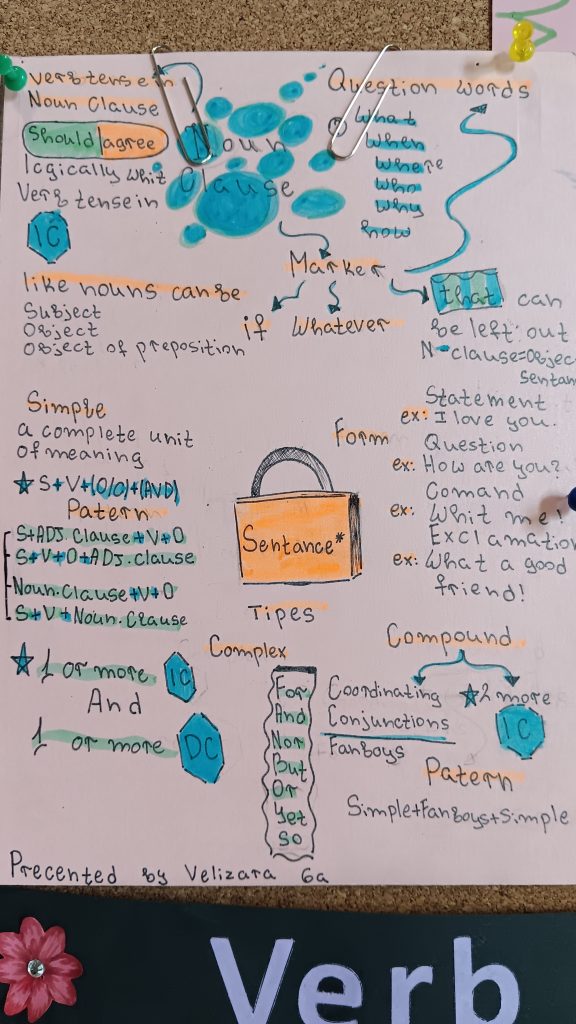 Verb tense in
Noun Clause
Should agree
logically whit
Verb tense in
IC
Noun
Clause
Question words
What
When
Where
Who
Why
how
Marker
if
Whatever
that can
be left out
N-clause=Objec
Sentan
like nouns can be
Subject
Object
Object of preposition
Simple
a complete unit
of meaning
S+V+(O/O)+(AVD)
Patern
S+ADJ.Clause+V+O
S+V+O+ADJ.clause
Noun.Clause+V+O
S+V+Noun.Clause
Sentance*
Form
Statement
ex: I love you.
Question
ex: How are you?
Comand
ex: Whit me!
Exclamation
ex: What a good
friend!
Tipes
Complex
1 or more IC
And
1 or more DC
For
And
Nor
But
Or
Yet
So
Compound
Coordinating
Conjunctions
Fanboys
2 more
IC
Patern
Simple+Fanboys+Simple
Precented by Velizara 6a
Verb